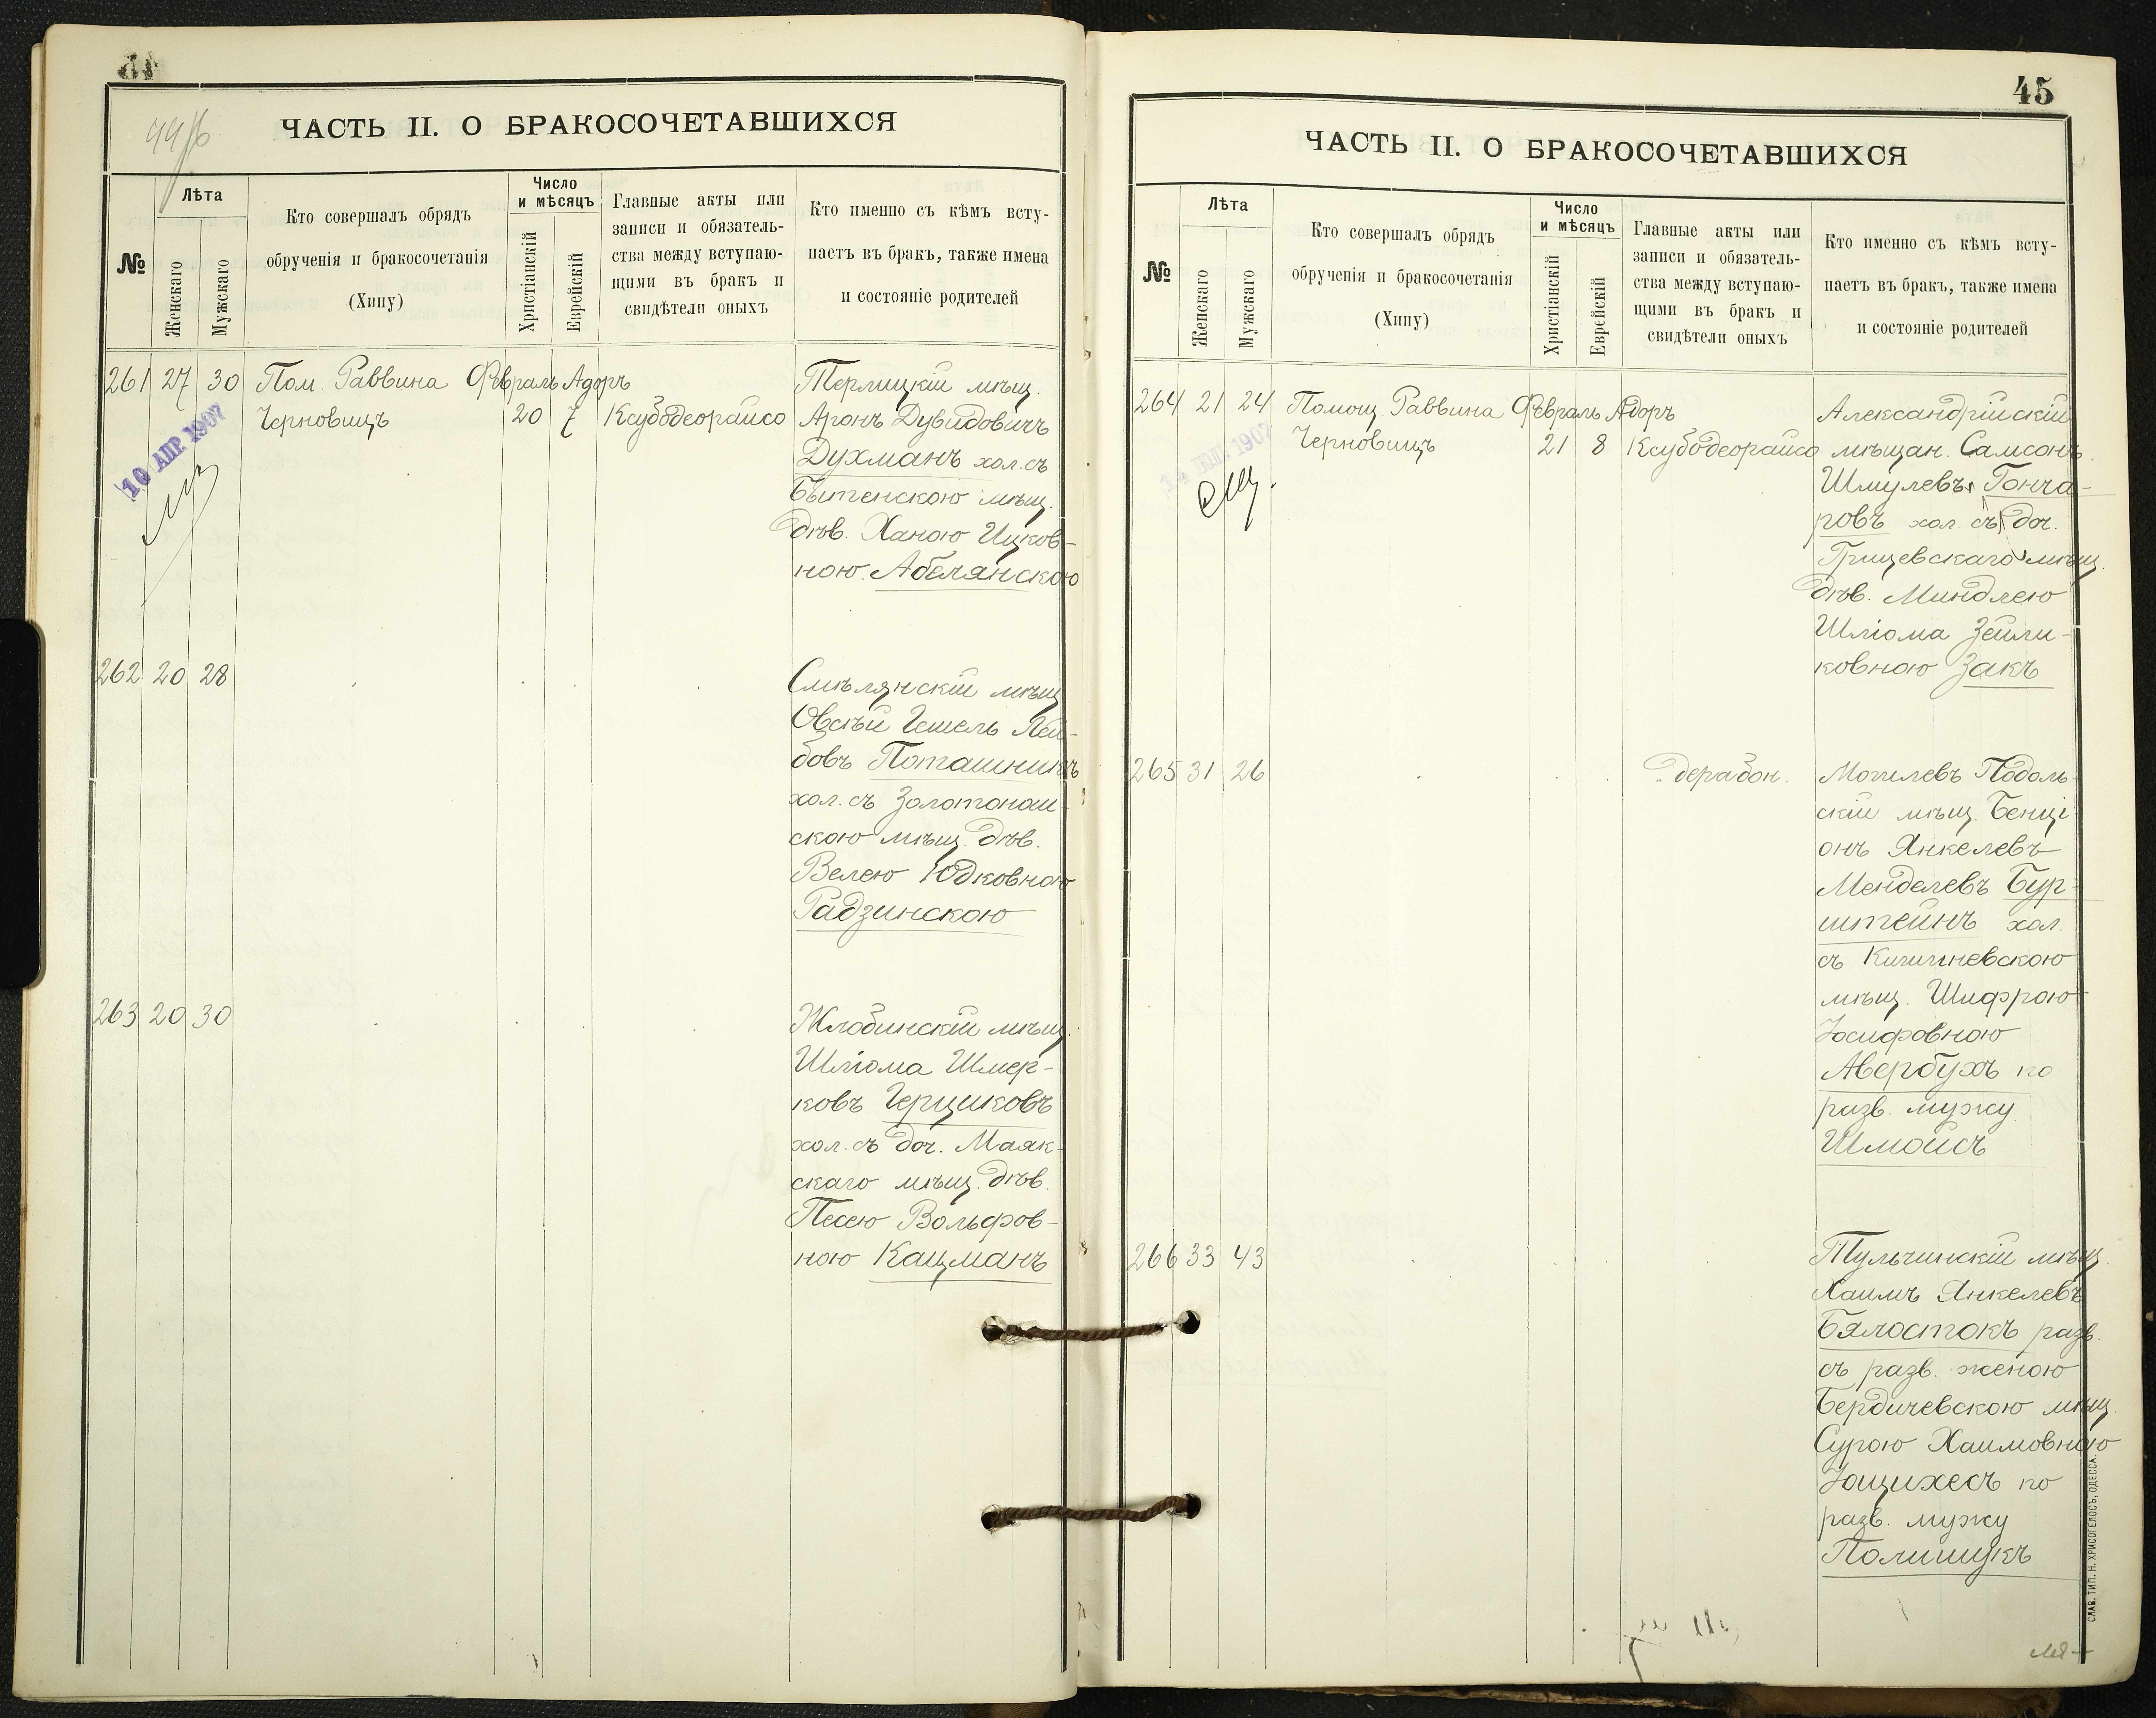 44 об
ЧАСТЬ II. О БРАКОСОЧЕТАВШИХСЯ
№
Лѣта
Женскаго
Мужскаго
Кто совершалъ обрядъ
обрученія и бракосочетанія
(Хипу)
Число
и мѣсяцъ
Христіанскій
Еврейскій
Главные акты или
записи и обязатель-
ства между вступаю-
щими въ бракъ и
свидѣтели оныхъ
Кто именно съ кѣмъ всту-
паетъ въ бракъ, также имена
и состояніе родителей
261 27 30 Пом. Раввина Февраль Адоръ
Черновицъ 20 7 Ксубодеорайсо
10 АПР 1907
Терлицкій мѣщ.
Аронъ Дувидовичъ
Духманъ хол. съ
Бытенскою мѣщ.
дѣв. Ханою Ицков-
ною Абелянскою
262 20 28
Смѣлянскій мѣщ
Овсѣй Гешель Лей-
бовъ Поташникъ
хол. съ Золотонош-
скою мѣщ. дѣв.
Велею Юдковною
Радзинскою
263 20 30
Жлобинскій мѣщ.
Шліома Шмер-
ковъ Герциковъ
хол. съ доч. Маяк-
скаго мѣщ. дѣв.
Песею Вольфов-
ною Кацманъ
45
ЧАСТЬ II. О БРАКОСОЧЕТАВШИХСЯ
№
Лѣта
Женскаго
Мужскаго
Кто совершалъ обрядъ
обрученія и бракосочетанія
(Хипу)
Число
и мѣсяцъ
Христіанскій
Еврейскій
Главные акты или
записи и обязатель-
ства между вступаю-
щими въ бракъ и
свидѣтели оныхъ
Кто именно съ кѣмъ всту-
паетъ въ бракъ, также имена
и состояніе родителей
264 21 24 Помощ Раввина Февраль Адоръ
Черновицъ 21 8 Ксубодеорайсо
1907
Александрійскій
мѣщан. Самсонъ
Шмулевъ Гонча-
ровъ хол. съ доч.
Грицевскаго мѣщ.
дѣв. Миндлею
Шліома Зейли-
ковною Закъ
265 31 26
дерабон.
Могилевъ Подоль-
скій мѣщ. Бенці
онъ Янкелевъ
Менделевъ Бур-
штейнъ хол.
съ Кишиневскою
мѣщ. Шифрою
Іосифовною
Авербухъ по
разв. мужу
Шмойсъ
266 33 43
Тульчинскій мѣщ.
Хаимъ Янкелевъ
Бялостокъ разв.
съ разв. женою
Бердичевскою мѣщ
Сурою Хаимовною
Іоцихесъ по
разв. мужу
Полищукъ
СЛАВ. ТИП. Н. ХРИСОГЕЛОСЪ, ОДЕССА.